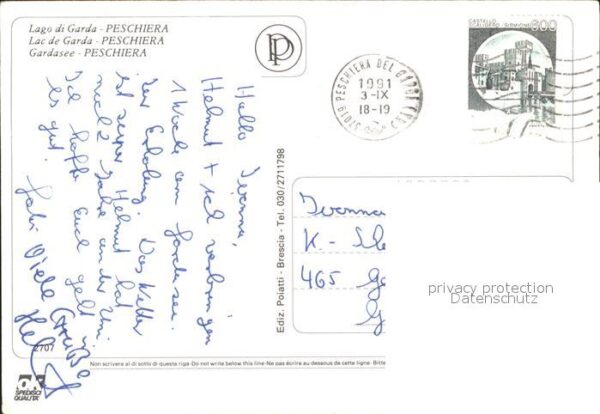 Lago di Garda - PESCHIERA
Lac de Garda - PESCHIERA
Gardasee - PESCHIERA
PP
CASTELLO
SCALIGERO / SIRMIONE
800
37019 PESCHIERA DEL GARDA
1991
3-IX
18-19
Hallo Ivonna,
Helmut + ich verbringen
1 Woche am Gardasee.
Zur Erholung. Das Wetter
ist super. Helmut hat
noch 2 Jahre an der Uni.
Ich hoffe Euch geht
es gut. Viele Grüße
Gabi
Hel
Ediz. Polatti - Brescia - Tel. 030/2711798
Ivonna
K.
465 Ge
G
privacy protection
Datenschutz
2707
Non scrivere al di sotto di questa riga - Do not write below this line - Ne pas écrire au dessous de cette ligne - Bitte
OK
SPEDISCI
QUALITA'